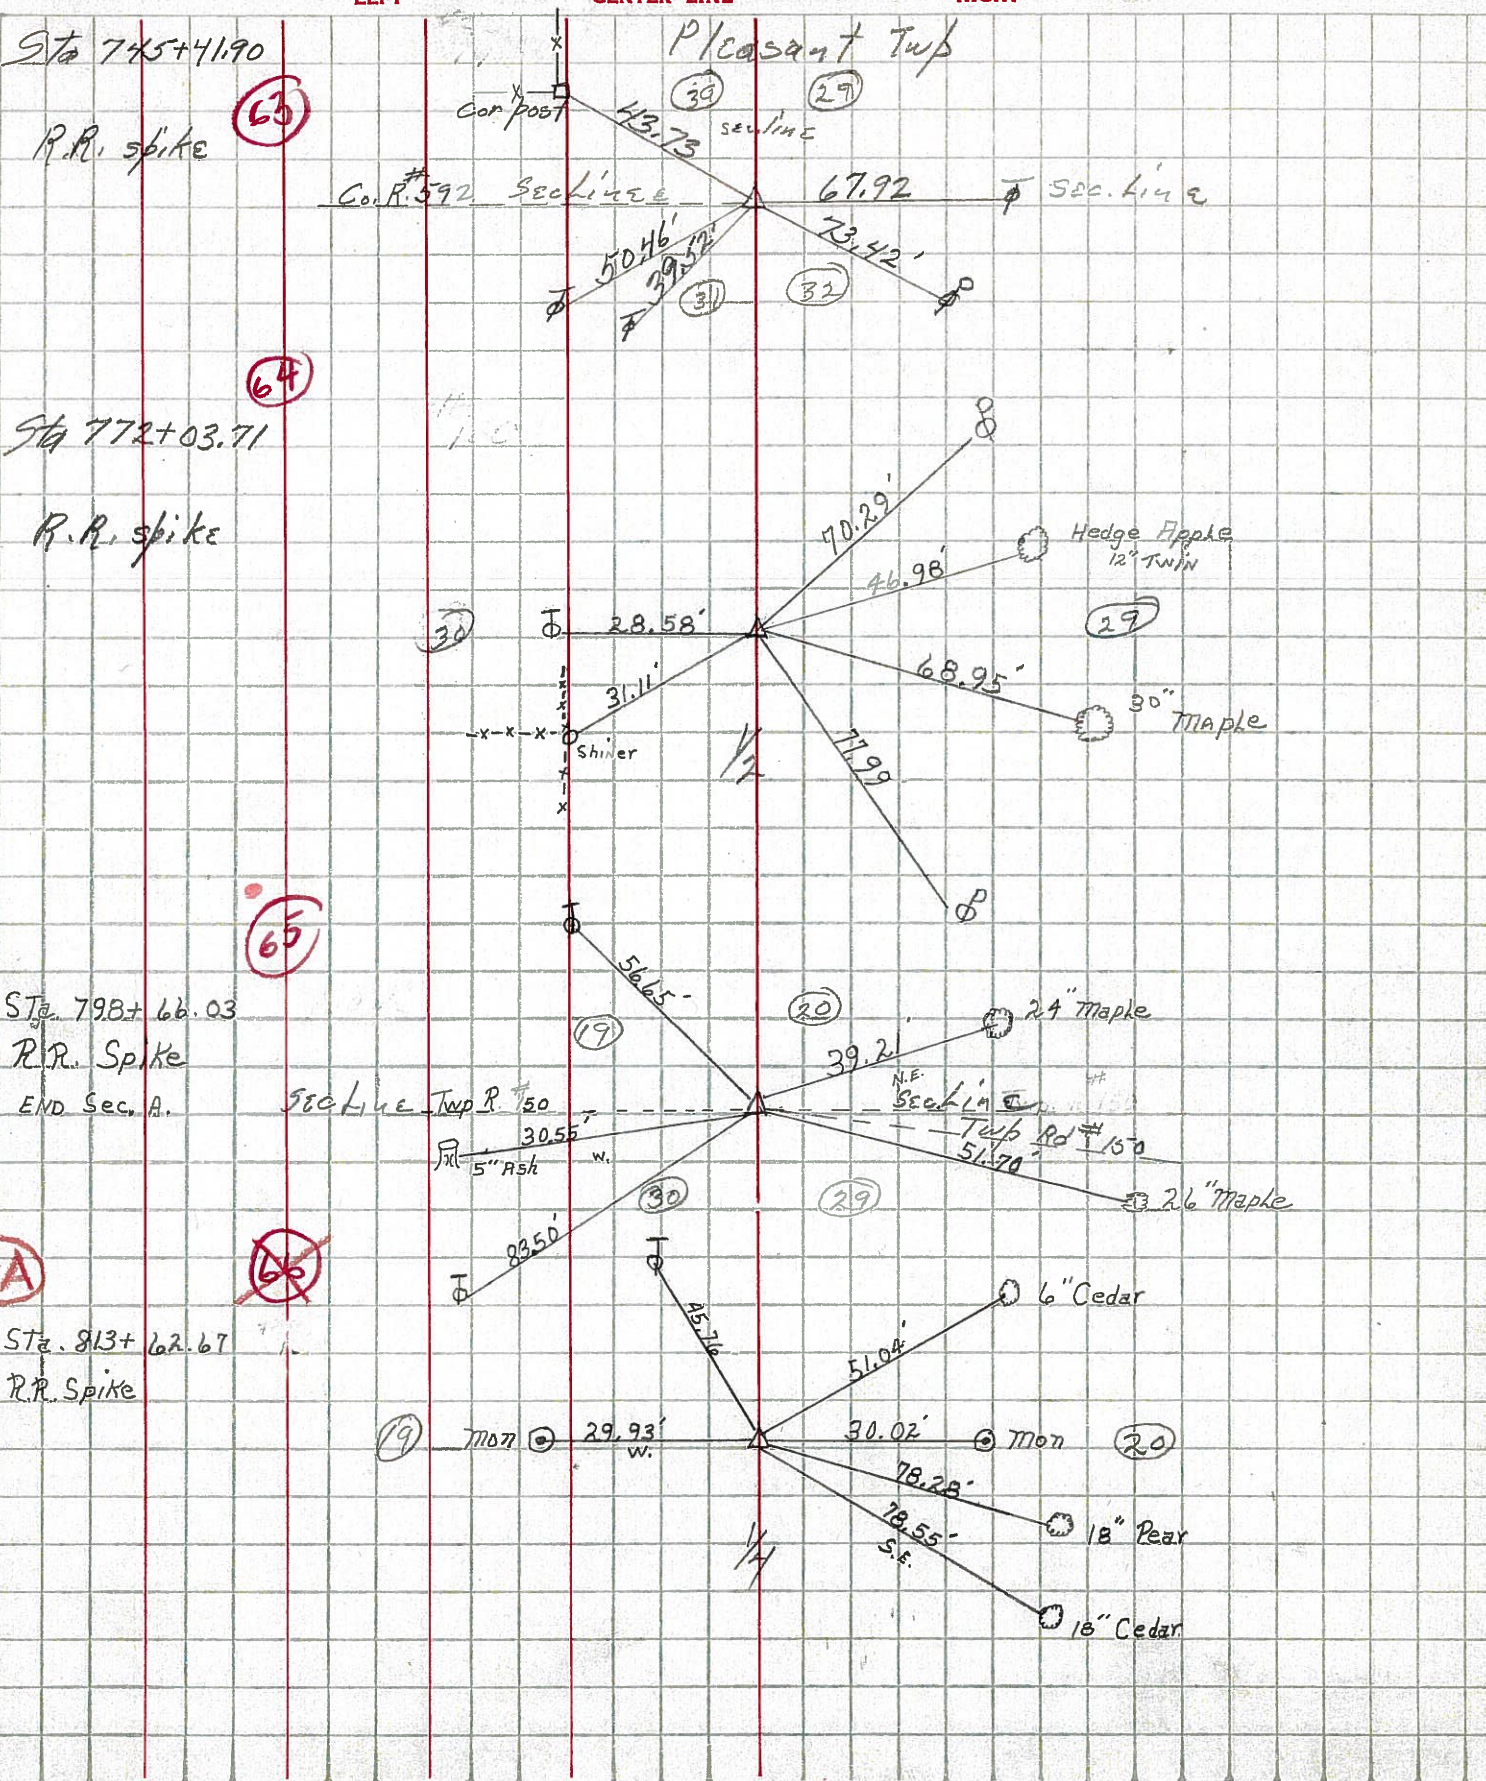 LEFT CENTER LINE RIGHT
Sta 745+41.90
Pleasant Twp
63
Cor post
43.73
30
29
sec line
R.R. spike
Co. R. #592 Sec Line
67.92
Sec. Line
50.46'
39.52'
73.42'
31
32
64
Sta 772+03.71
R.R. spike
70.29'
Hedge Apple
12" TWIN
46.98'
30
28.58'
29
31.11'
68.95'
30" Maple
Shiner
1/2
77.99
65
56.65'
STa. 798+66.03
R.R. Spike
END Sec. A.
19
20
24" Maple
39.21'
N.E.
Sec Line Twp R. #150
Sec. Line
Twp Rd #150
30.55'
W.
5" Ash
51.70'
26" Maple
30
29
83.50'
A
66
STa. 813+62.67
R.R. Spike
45.76
6" Cedar
51.04'
19
Mon
29.93'
W.
30.02'
Mon
20
78.28'
18" Pear
78.55'
S.E.
1/4
18" Cedar